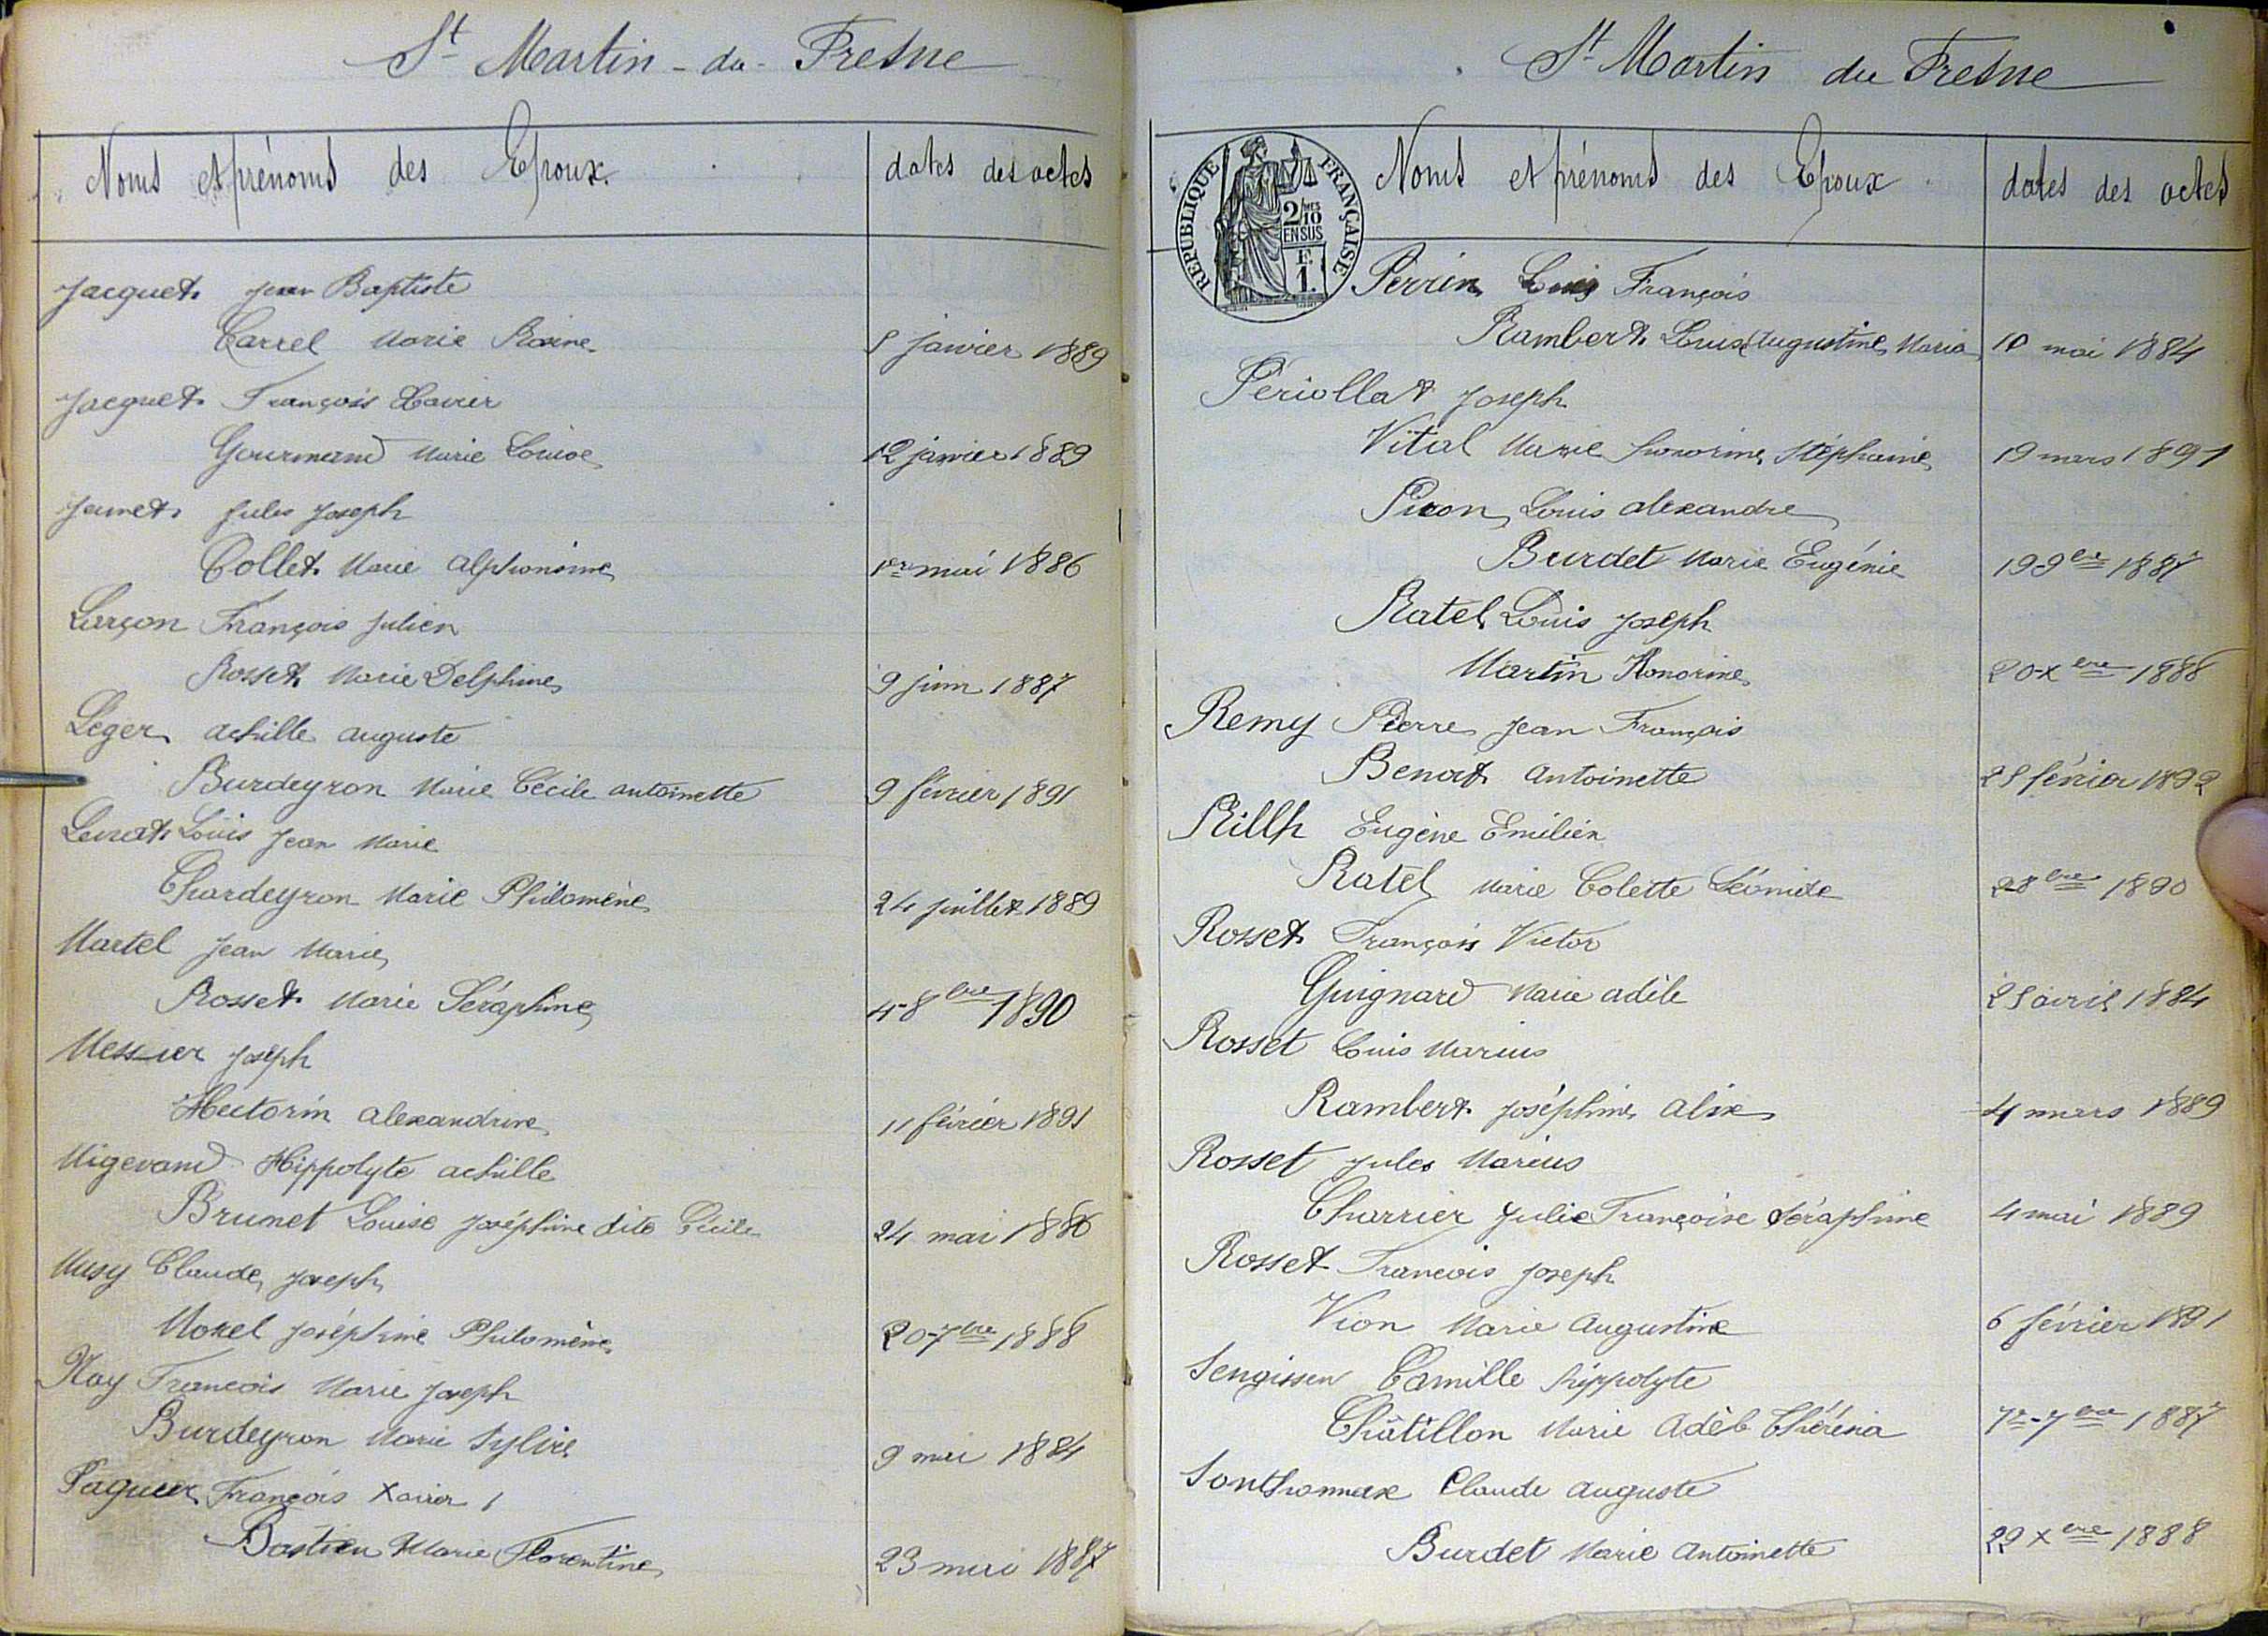 St Martin-du-Fresne
Noms et prénoms des Epoux.
dates des actes
Jacquet Jean Baptiste
Carrel Marie Rosine
5 janvier 1889
Jacquet François Xavier
Gourmand Marie Louise
12 janvier 1889
Jeunet Jules Joseph
Collet Marie Alphonsine
1er mai 1886
Larçon François Julien
Rosset Marie Delphine
9 juin 1887
Leger achille auguste
Burdeyron Marie Cécile antoinette
9 février 1891
Levrat Louis Jean Marie
Chardeyron Marie Philomène
24 juillet 1889
Martel Jean Marie
Rosset Marie Séraphine
4-8bre 1890
Messier Joseph
Hectorin alexandrine
11 février 1891
Migevand Hippolyte achille
Brunet Louise Joséphine dite Cécile
24 mai 1886
Musy Claude Joseph
Morel Joséphine Philomène
20-7bre 1888
Nay Francois Marie Joseph
Burdeyron Marie Sylvie
9 mai 1884
Paquier François Xavier
Bastien Marie Florentine
23 mai 1887
St Martin du Fresne
REPUBLIQUE FRANÇAISE
2/10 MES
EN SUS
F. 1.
Noms et prénoms des Epoux
dates des actes
Perrin Louis François
Rambert Louise Augustine Maria
10 mai 1884
Périollat Joseph
Vital Marie honorine Stéphanie
19 mars 1891
Picon Louis alexandre
Burdet Marie Eugénie
19-9bre 1887
Ratel Louis Joseph
Martin Honorine
20-xbre 1886
Remy Pierre Jean François
Benoit Antoinette
25 février 1892
Rillh Eugène Emilien
Ratel Marie Colette Léonide
28bre 1890
Rosset François Victor
Guignard Marie adèle
25 avril 1884
Rosset Louis Marius
Rambert Joséphine alix
4 mars 1889
Rosset Jules Marius
Charrier Julie Françoise Séraphine
4 mai 1889
Rosset Francois Joseph
Vion Marie Augustine
6 février 1891
Sengissen Camille hippolyte
Châtillon Marie Adèle Thérésia
1er-7bre 1887
Sonthonnax Claude auguste
Burdet Marie Antoinette
29 xbre 1888